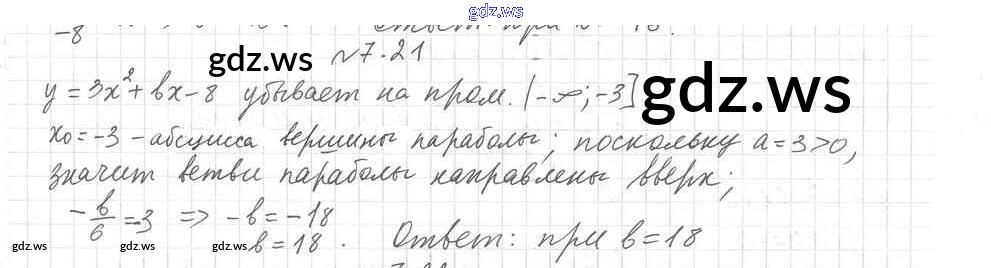 gdz.ws
-8 Ответ: при 18.
№7.21
gdz.ws
y = 3x² + bx - 8 убывает на пром. (-∞; -3] gdz.ws
x₀ = -3 - абсцисса вершины параболы; поскольку a = 3 > 0,
значит ветви параболы направлены вверх;
-b/6 = -3 => -b = -18
gdz.ws gdz.ws b = 18. Ответ: при b = 18 gdz.ws